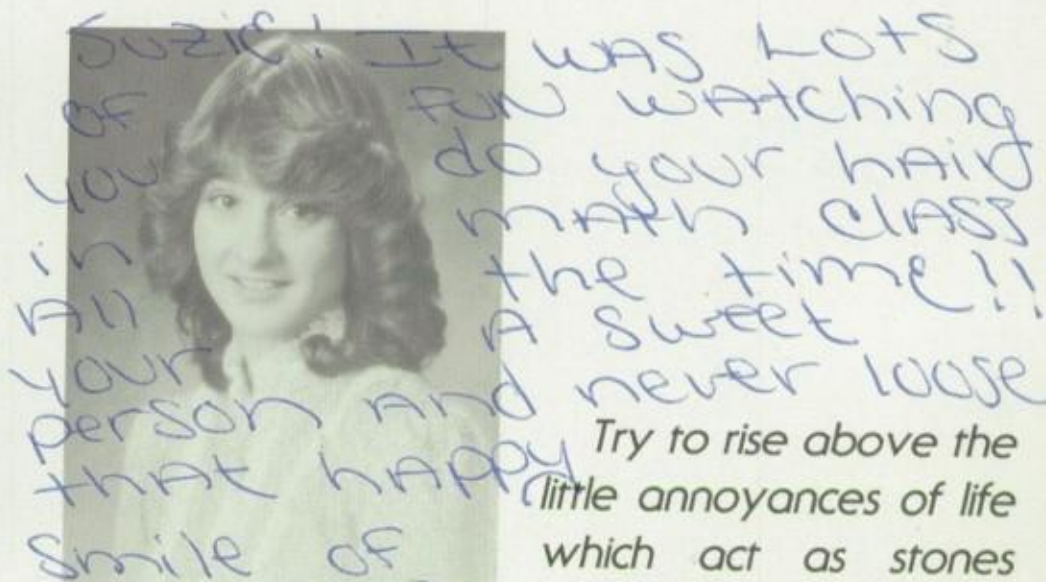 Suzie! It was Lots
of fun watching
you do your hair
in math class
All the time!!
your A sweet
person And never loose
that happy
smile of
Try to rise above the
little annoyances of life
which act as stones